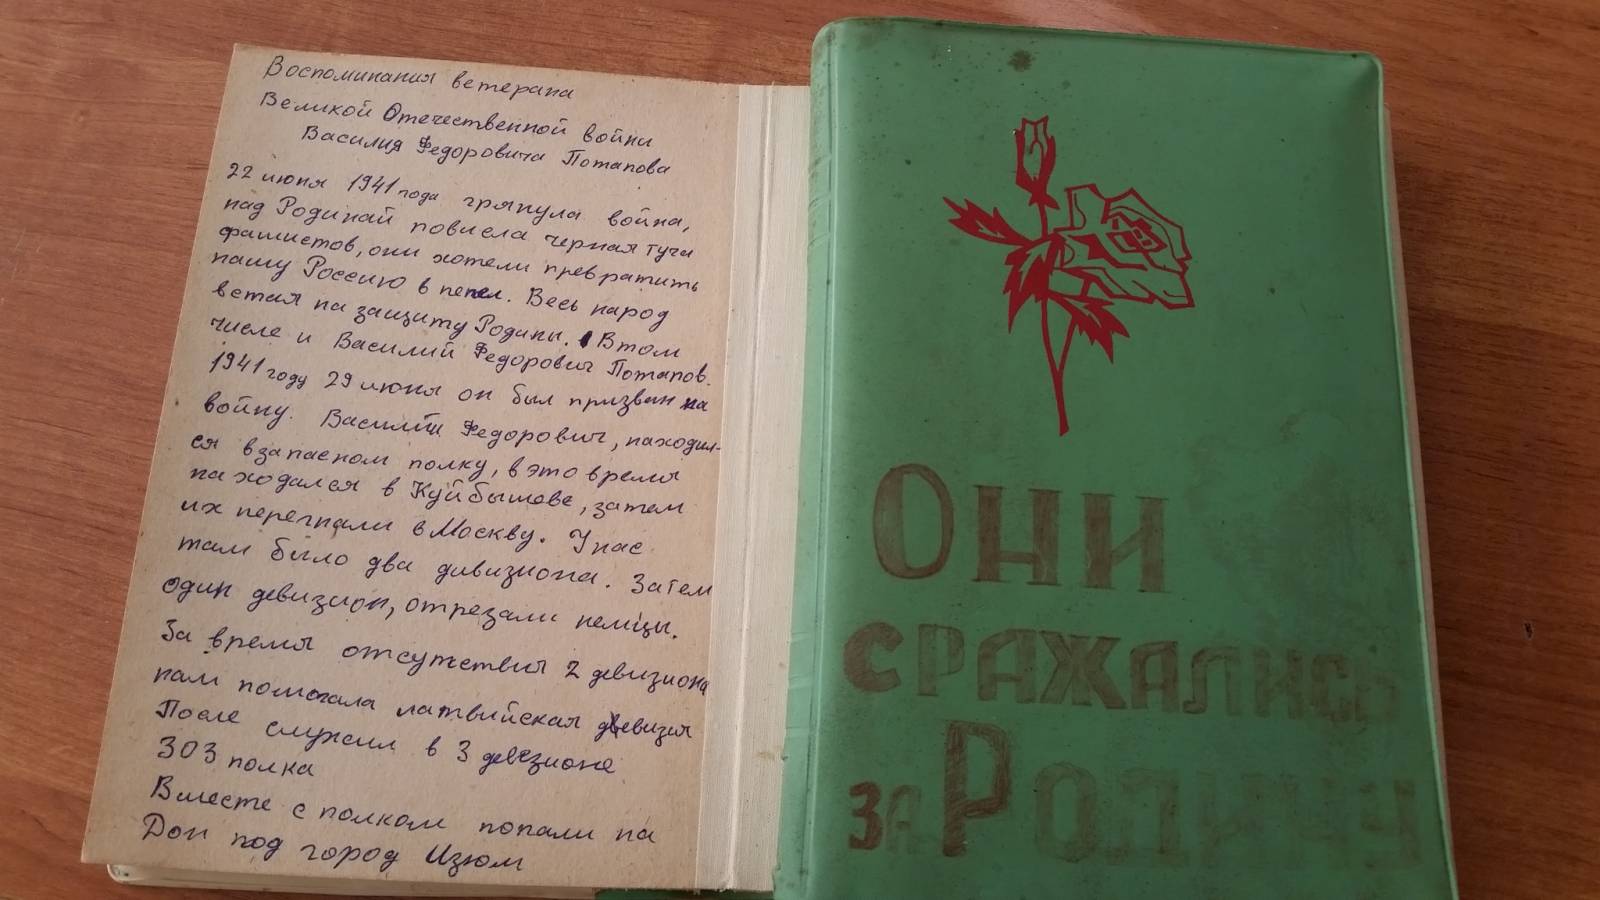 Воспоминания ветерана
Великой Отечественной войни
Василия Федоровича Потапова
22 июня 1941 года грянула война,
над Родинай повисла черная туча
фашистов, они хотели превратить
нашу Россию в пепел. Весь народ
встал на защиту Родины. Втом
числе и Василий Федорович Потапов.
1941 году 29 июня он был призван на
войну. Василий Федорович, находил-
ся взапасном полку, в это время
находался в Куйбышеве, затем
их перегнали в Москву. Унас
там было два дивизиона. Затем
один девизион, отрезали немцы.
За время отсутствия 2 девизиона
нам помогала латвийская девизия
После служил в 3 девезионе
303 полка
Вместе с полком попали на
Дон под город Изюм
Они
сражались
за Родину